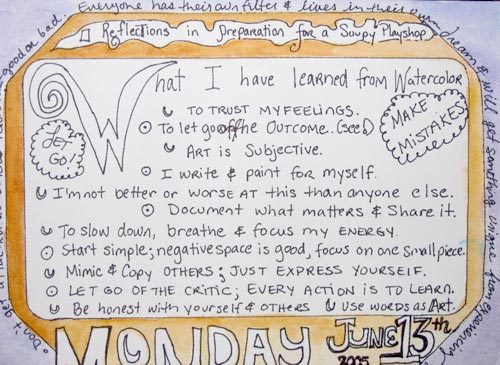 Everyone has their own filter & lives in their own dream & will get something unique from experiencing
Reflections in preparation for a Soupy Playshop
What I have learned from Watercolor
TO TRUST MY FEELINGS.
To let go of the OUTCOME. (see b)
ART IS SUBJECTIVE.
I write & paint for myself.
I'm not better or worse at this than anyone else.
Document what matters & share it.
To slow down, breathe & focus my ENERGY.
Start simple; negative space is good, focus on one small piece.
Mimic & Copy OTHERS; JUST EXPRESS YOURSELF.
LET GO OF THE CRITIC; EVERY ACTION IS TO LEARN.
Be honest with yourself & others
Use words as Art.
LET GO!
MAKE MISTAKES
MONDAY JUNE 13th
2005
good or bad.
Don't get